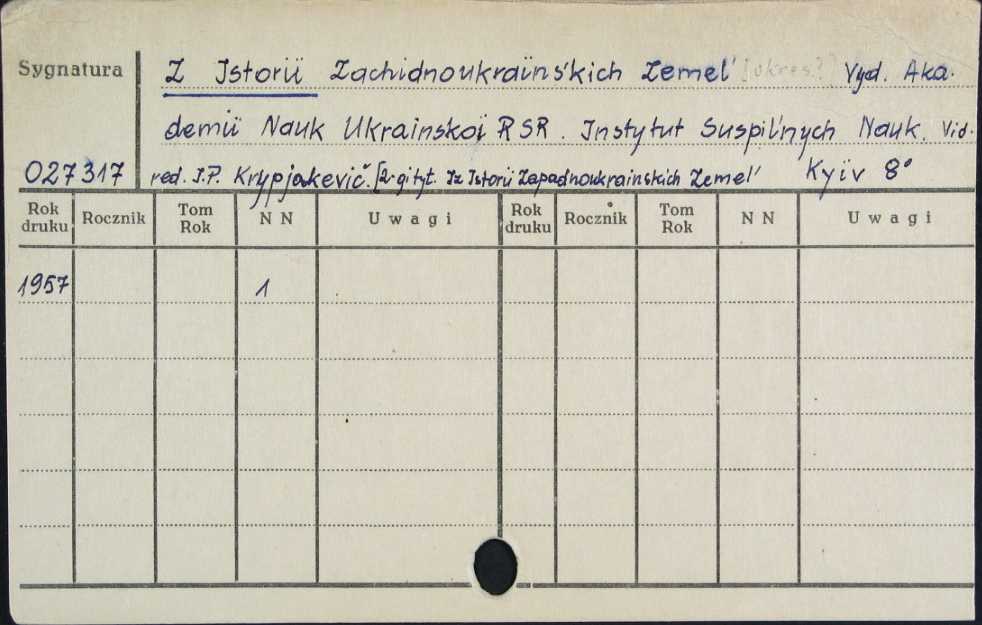 Sygnatura
Z Istoriï Zachidnoukraïns'kich Zemel' [okres?] Vyd. Aka-
demiï Nauk Ukrainskoj RSR. Instytut Suspil'nych Nauk. Vid-
027317 red. I.P. Krypjakevič. [2-gi tyt. Iz Istorii Zapadnoukrainskich Zemel' Kyïv 8°
Rok druku Rocznik Tom Rok N N Uwagi Rok druku Rocznik Tom Rok N N Uwagi
1957 1